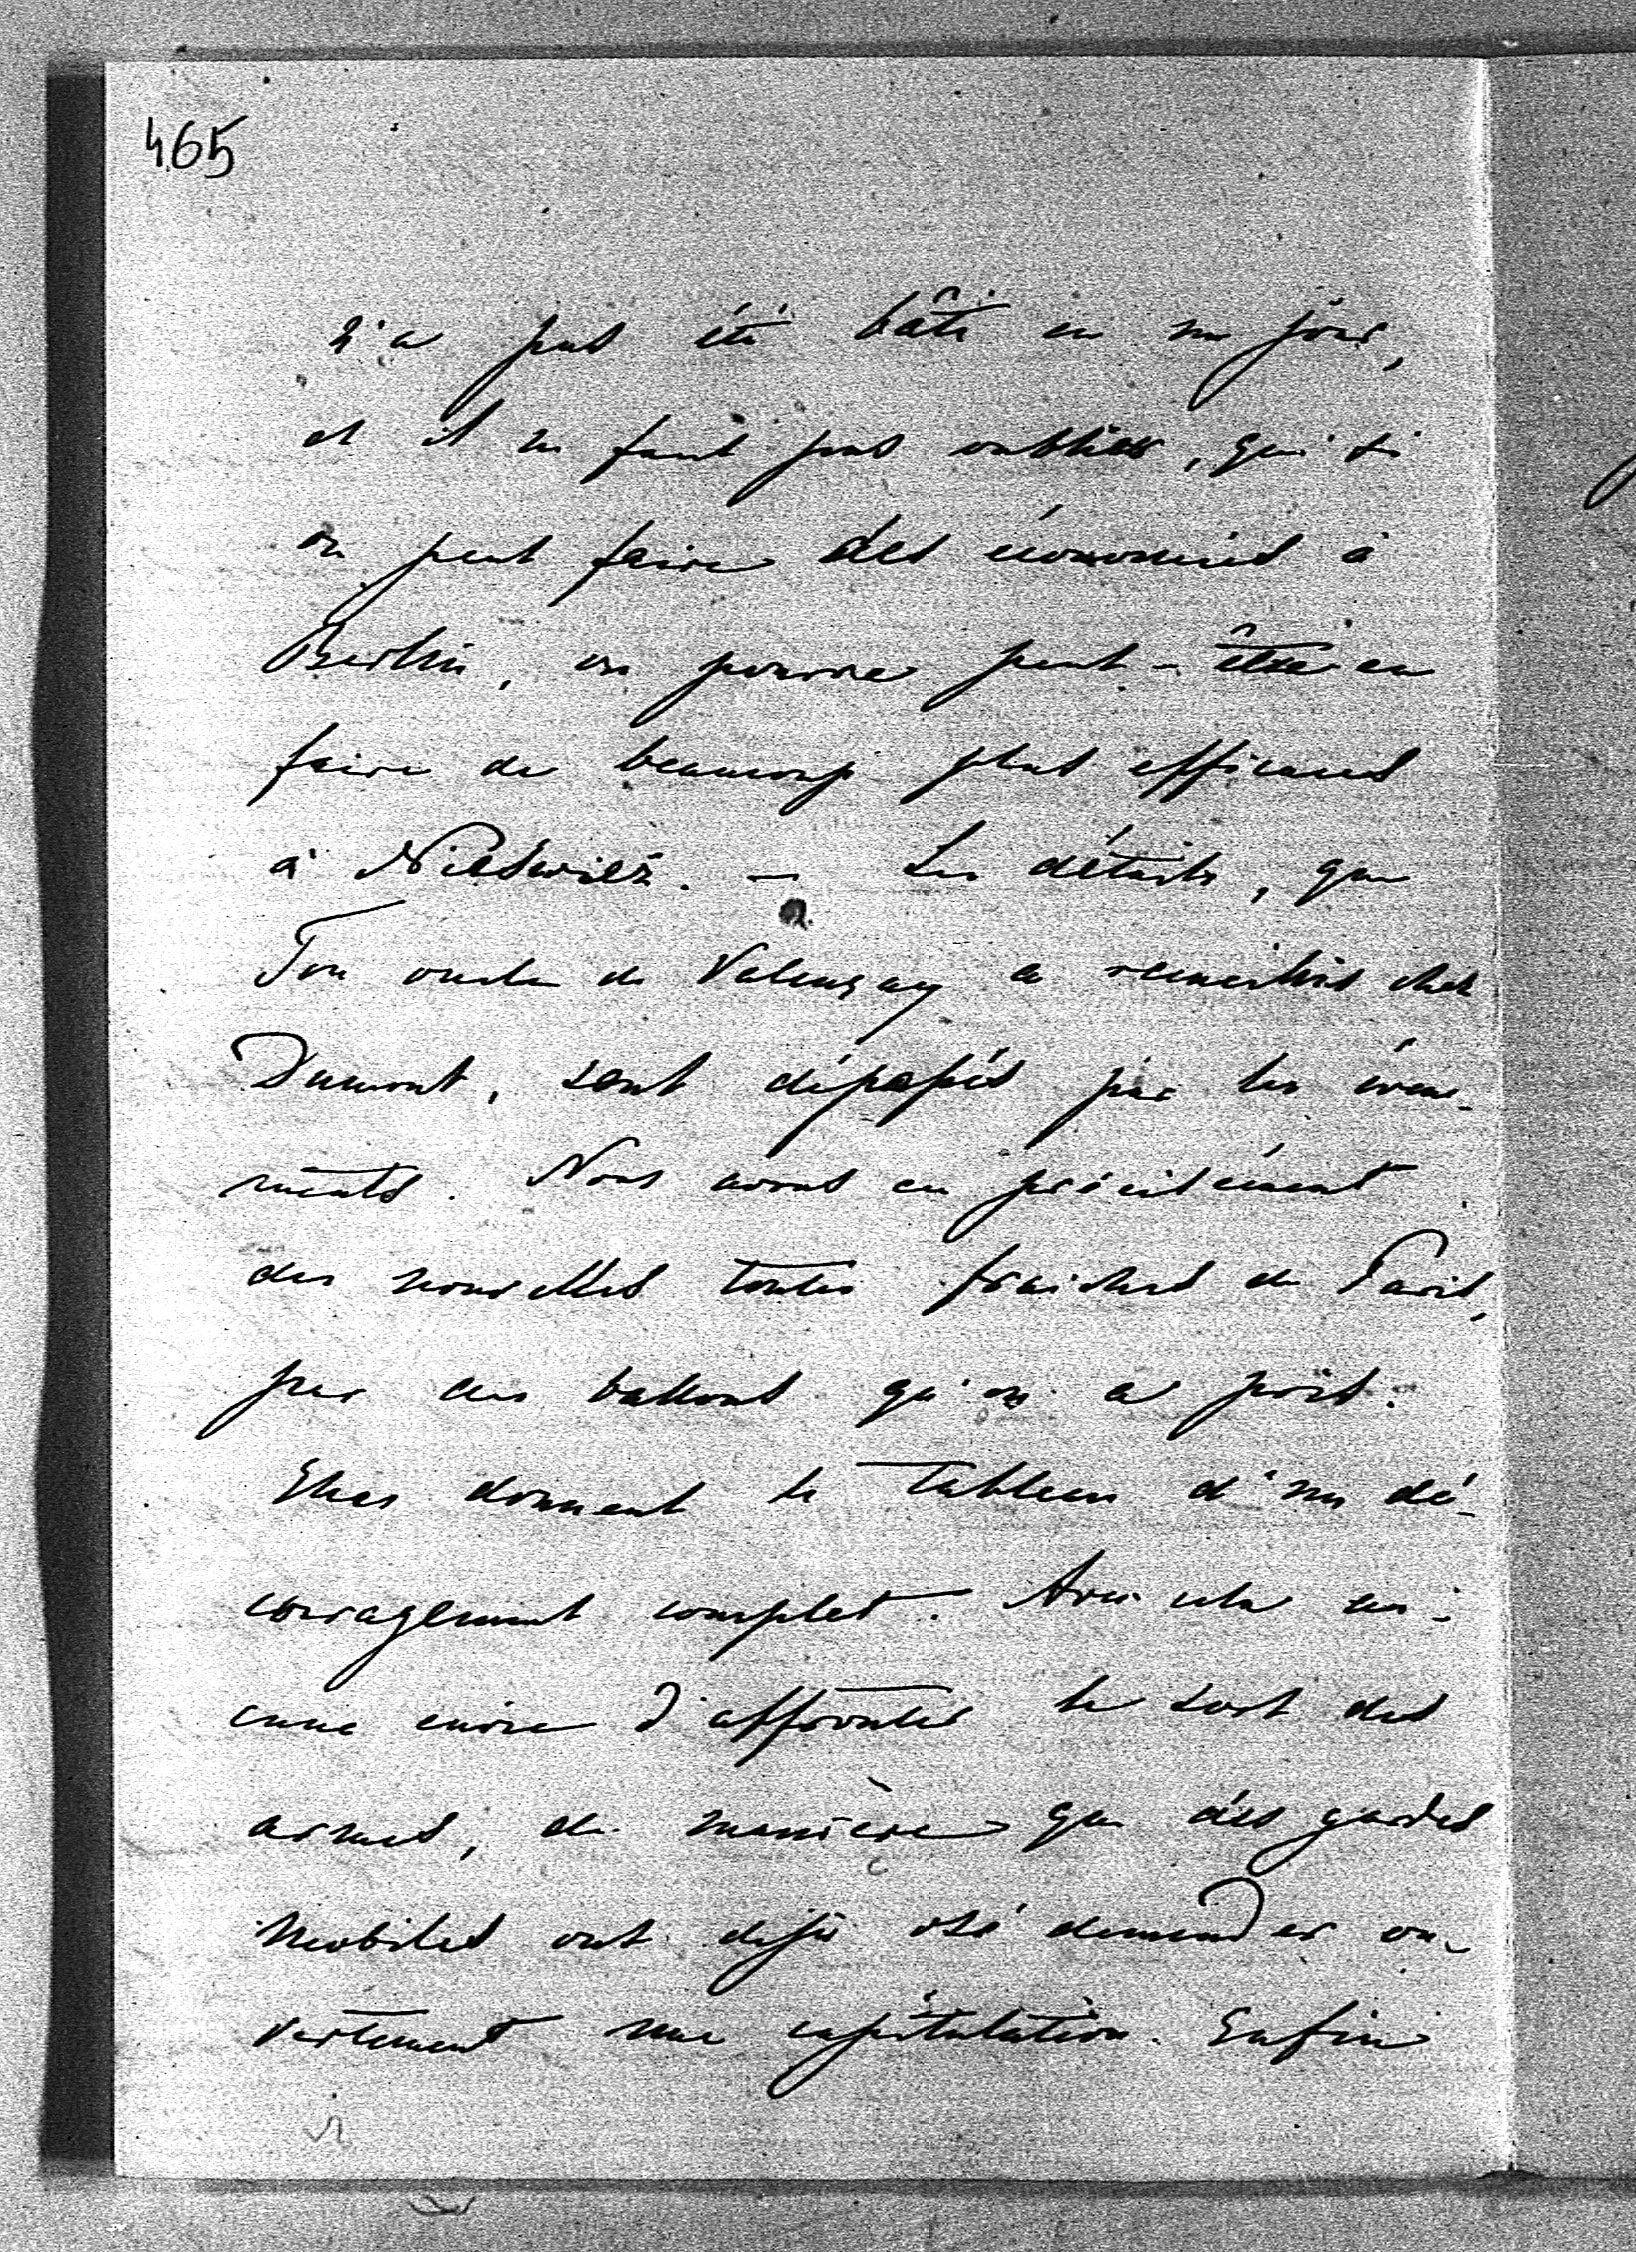 465
n'a pas été bâti en un jour,
et il ne faut pas oublier, que si
on peut faire des économies à
Berlin, on pourra peut-être en
faire de beaucoup plus efficaces
à Nieśwież. — Les détails, que
Ton oncle de Valençay a recueillis chez
Dumont, sont dépassés par les évene-
ments. Nous avons eu précisément
des nouvelles toutes fraiches de Paris,
par des ballons qu'on a pris.
Elles donnent le tableau d'un dé-
couragement complet. Avec cela au-
cune envie d'affronter le sort des
armes, de manière que des gardes
mobiles ont déjà osé demander ou-
vertement une capitulation. Enfin